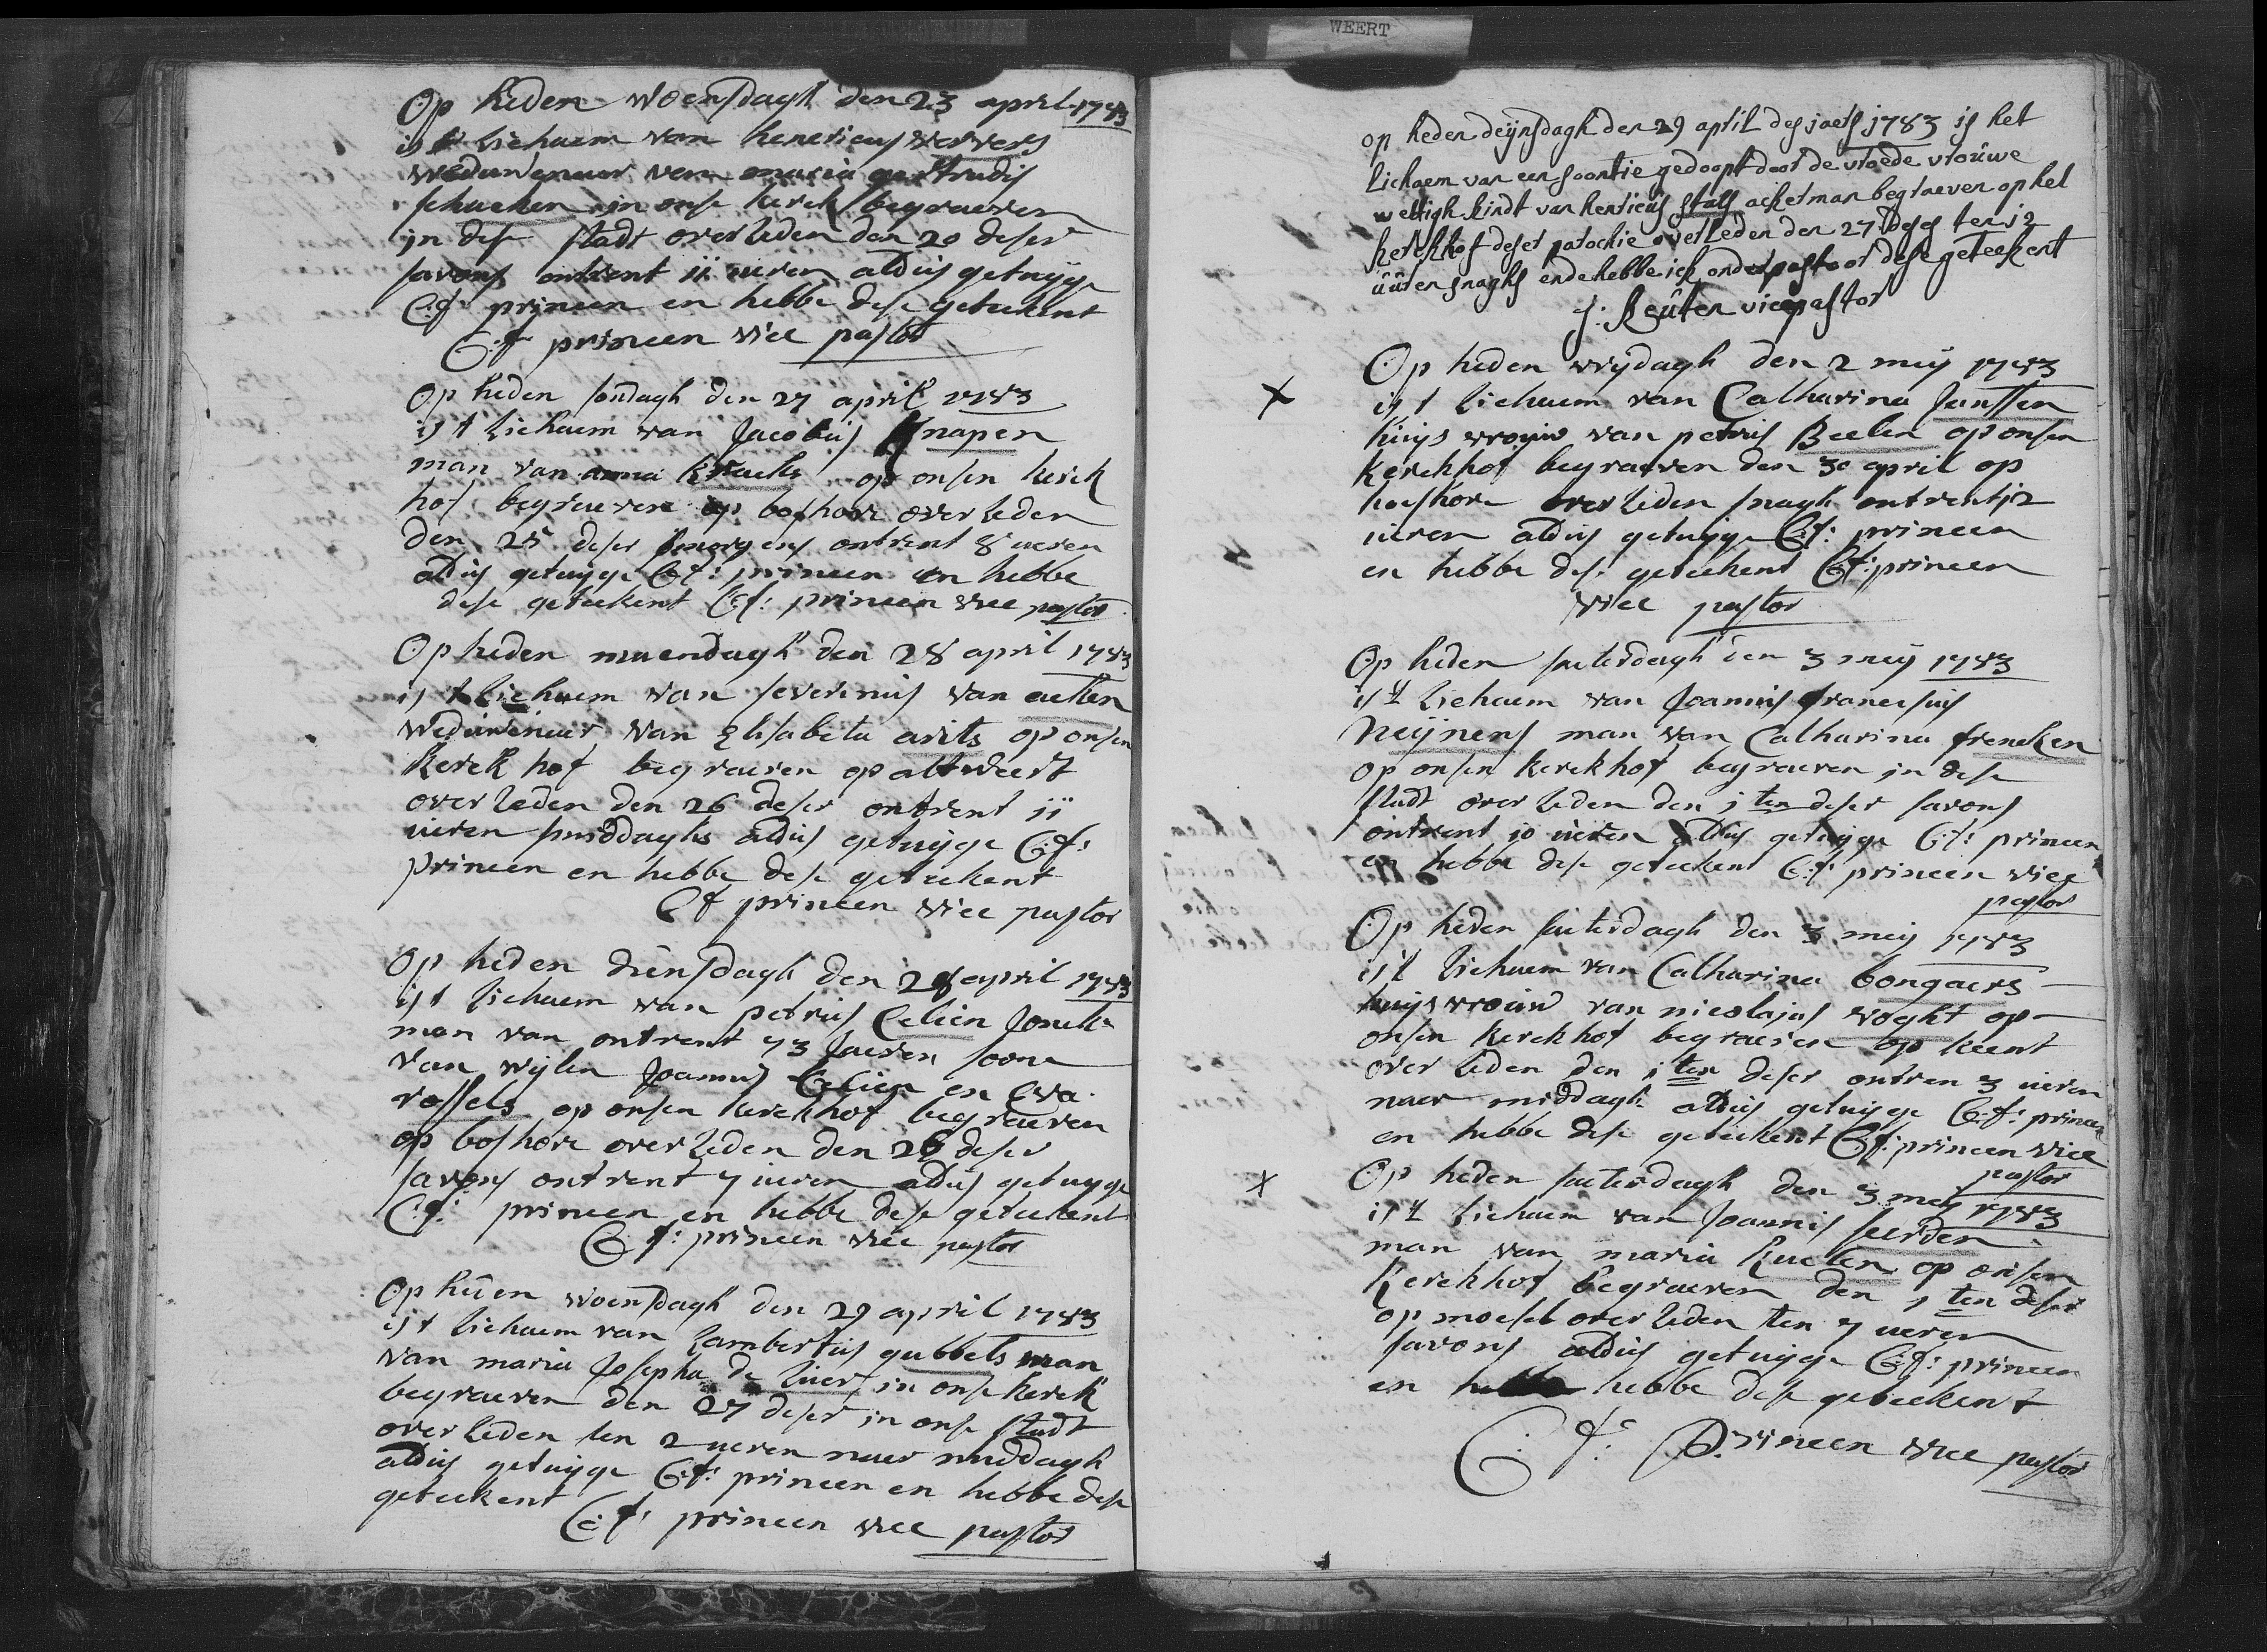 WEERT
Op heden woensdagh den 23 april 1783
is t lichaem van henricus ververs
weduwenaer van maria gertrudis
schaeken in onse kerck begraeven
in dese stadt overleden den 20 deser
savons ontrent ii uren aldus getuijge
C: f: princen en hebbe dese geteekent
C: f: princen vice pastor
Op heden sondagh den 27 april 1783
is t lichaem van Jacobus Knapen
man van anna op onsen kerck
hof begraeven op boshove overleden
den 25 deser smorgens ontrent 8 ueren
aldus getuijge C: f: princen en hebbe
dese geteekent C: f: princen vice pastor
Op heden maendagh den 28 april 1783
is t lichaem van severinus van
weduwenaer van Elisabeta arits op onsen
kerck hof begraeven op altweert
overleden den 26 deser ontrent ii
uren smiddaghs aldus getuijge C: f:
princen en hebbe dese geteekent
C f princen vice pastor
Op heden diensdagh den april 1783
is t lichaem van petrus Celien Jonck
man van ontrent 73 Jaeren soone
van wijlen Joannis Celien en Eva
rossels op onsen kerckhof begraeven
op boshove overleden den 26 deser
savons ontrent 7 ueren aldus getuijge
C: f: princen en hebbe dese geteekent
C: f: princen vice pastor
Op heden woensdagh den 29 april 1783
is t lichaem van Lambertus gubbels man
van maria Josepha de in onse kerck
begraeven den 27 deser in onse stadt
overleden ten 2 ueren naer middagh
aldus getuijge C: f: princen en hebbe dese
geteekent C: f: princen vice pastor
op heden deijnsdagh den 29 april des jaers 1783 is het
lichaem van een soontie gedoopt door de vroede vrouwe
wettigh kindt van henricus stals acherman begraeven op het
kerckhof deser parochie overleden den 27 deses ten i2
uuren snaghs ende hebbe ick onderpastoor dese geteekent
J: Reuten vicepastor
X
Op heden vrijdagh den 2 meij 1783
is t lichaem van Catharina Janssen
huijs vrouw van petrus Beelen op onsen
kerckhof begraeven den 30 april op
overleden snagh ontrent i2
ueren aldus getuijge C: f: princen
en hebbe dese geteekent C: f: princen
vice pastor
Op heden saeterdagh den 3 meij 1783
is t lichaem van Joannis fransiscus
Neijnens man van Catharina frencken
op onsen kerckhof begraeven in dese
stadt overleden den i ten deser savons
ontrent i0 ueren aldus getuijge C: f: princen
en hebbe dese geteekent C: f: princen vice
pastor
Op heden saeterdagh den 3 meij 1783
is t lichaem van Catharina bongaers
huijs vrouw van nicolajus voght op
onsen kerckhof begraeven op keent
overleden den i ten deser ontren 3 ueren
naer middagh aldus getuijge C: f: princen
en hebbe dese geteekent C: f: princen vice
pastor
X
Op heden saeterdagh den 3 meij 1783
is t lichaem van Joannis seerden
man van maria op onsen
kerckhof begraeven den i ten deser
op moesel overleden ten 7 ueren
savons aldus getuijge C: f: princen
en hebbe dese geteekent
C: f: Princen vice pastor